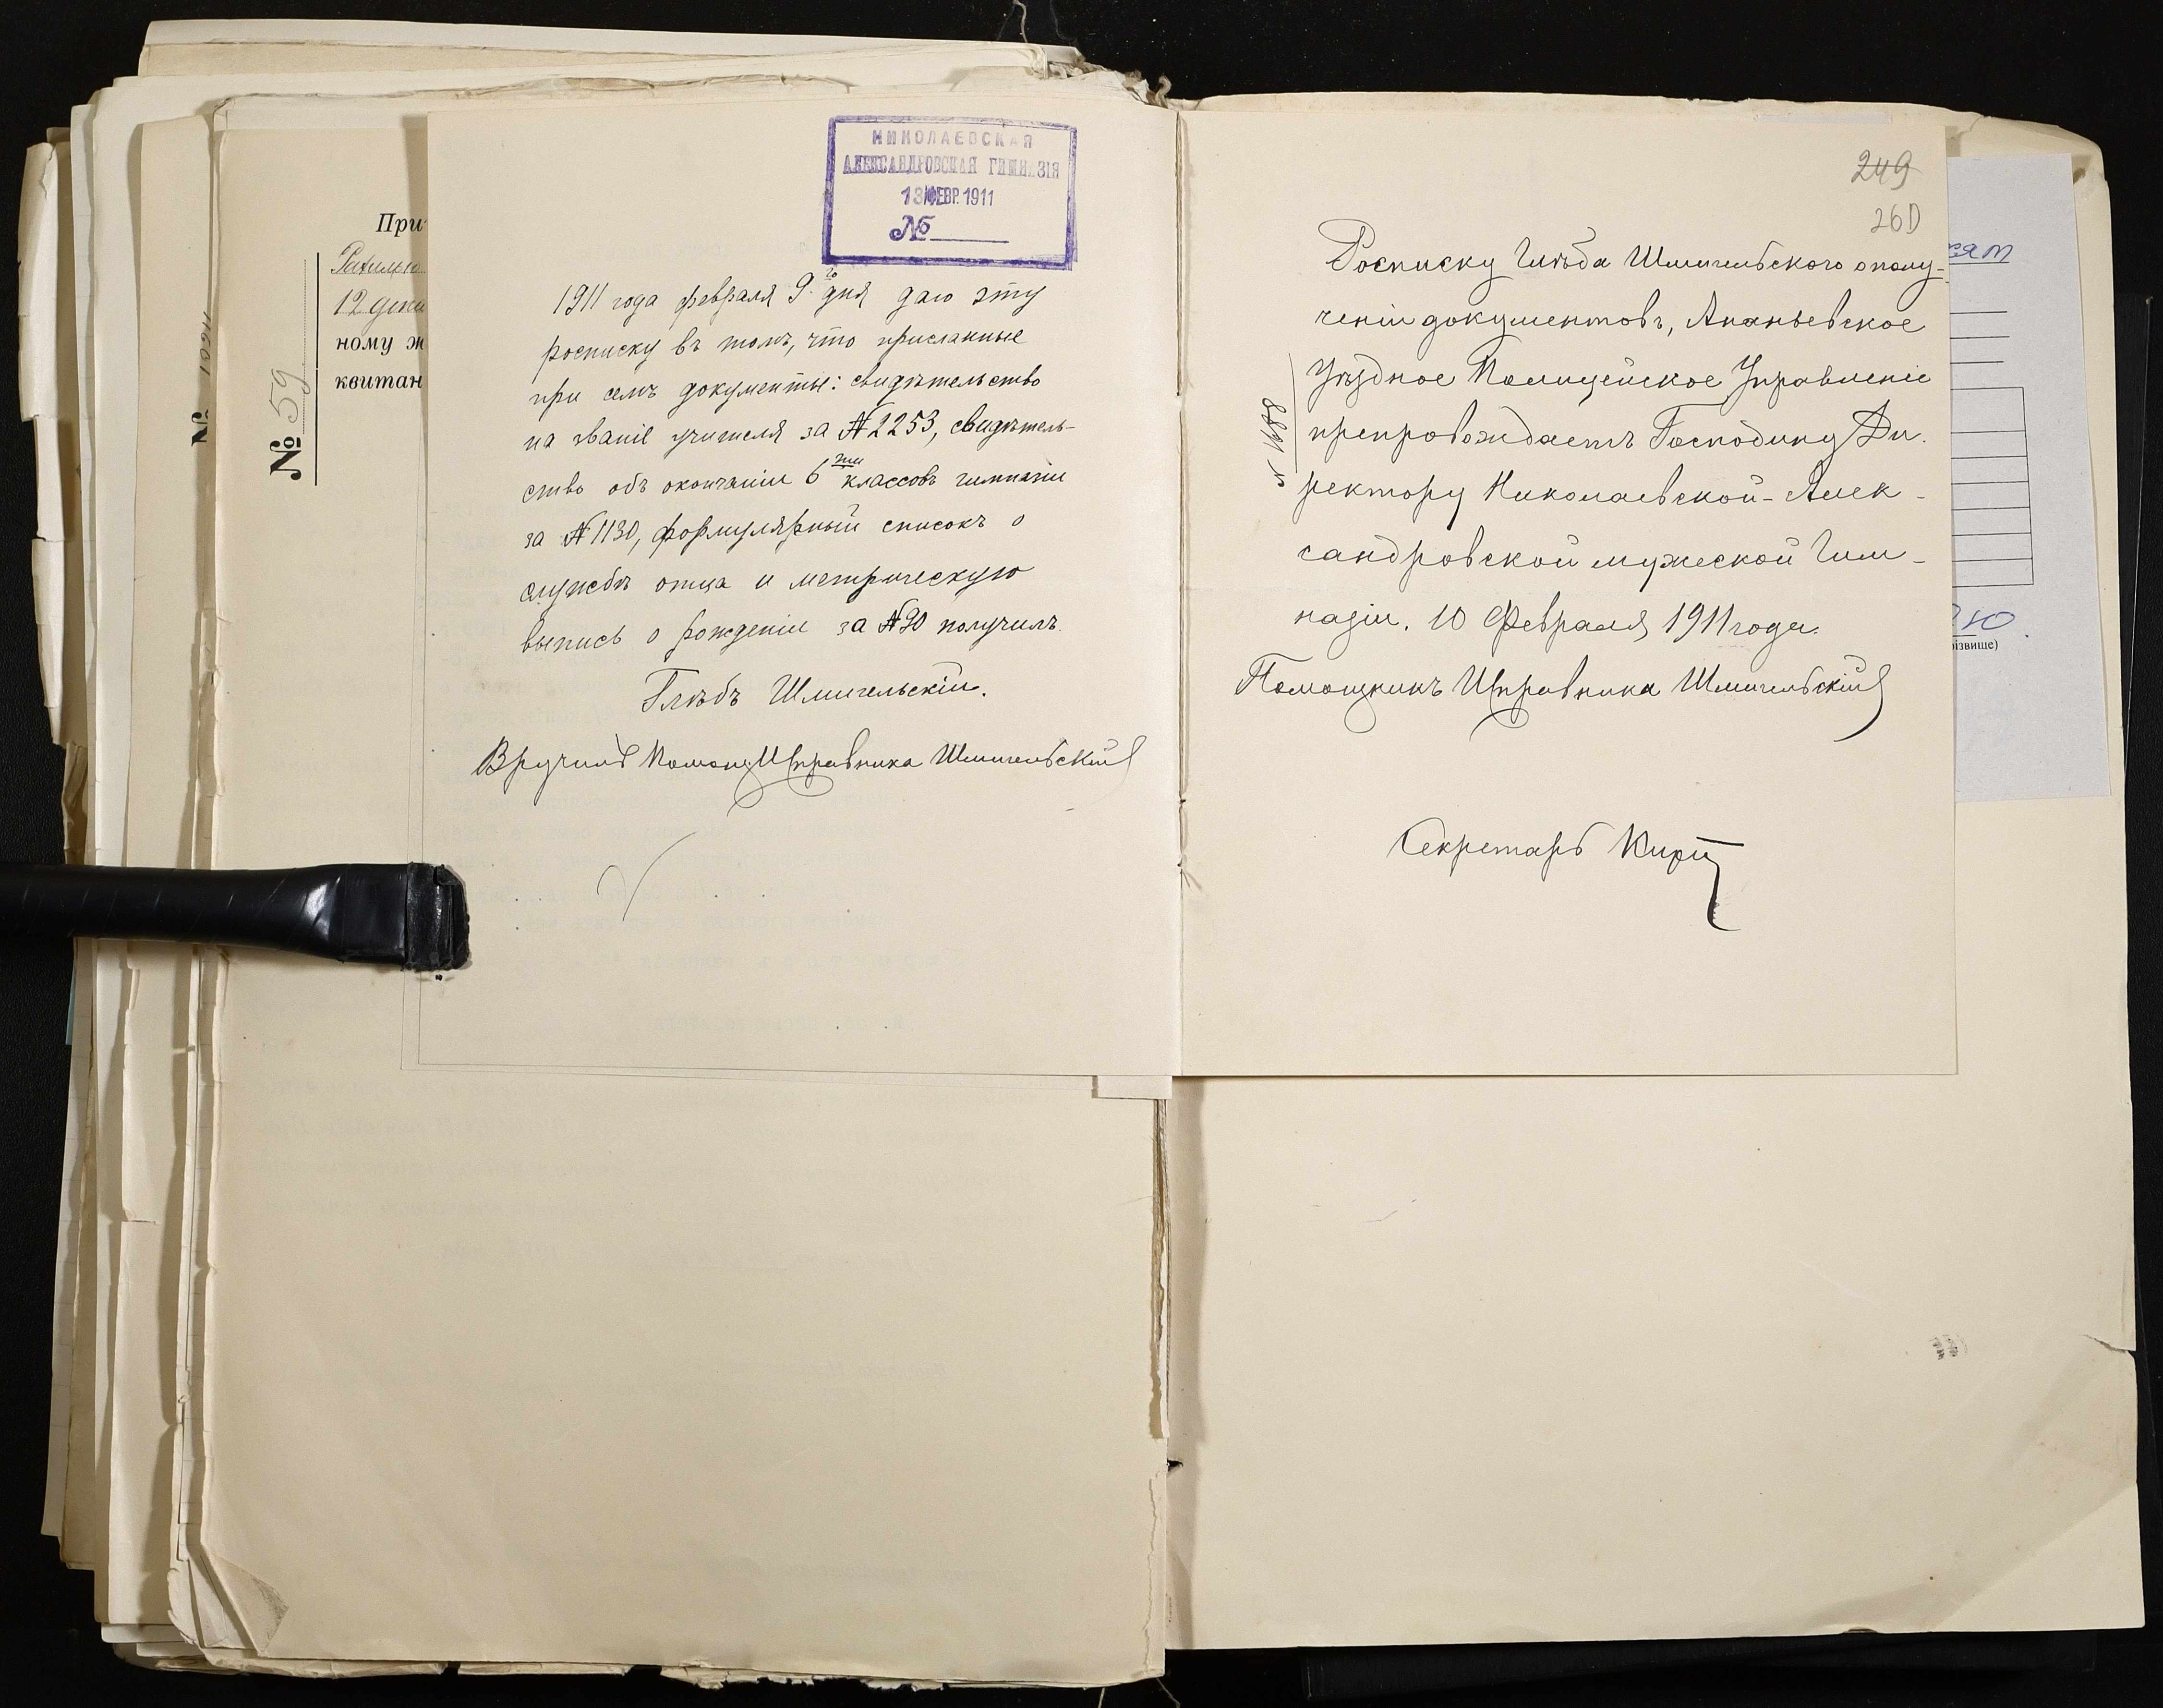 НИКОЛАЕВСКАЯ
АЛЕКСАНДРОВСКАЯ ГИМНАЗІЯ
13 ФЕВР. 1911
№
1911 года февраля 9го дня даю эту
росписку въ томъ, что присланные
при семъ документы: свидѣтельство
на званіе учителя за № 2253, свидѣтель-
ство объ окончаніи 6ти классовъ гимназіи
за № 1130, формулярный списокъ о
службѣ отца и метрическую
выпись о рожденіи за № 90 получилъ.
Глѣбъ Шмигельскій.
Вручилъ Помощ Исправника Шмигельскій
При
12 дека
ному ж
квитан
№ 59
№
249
260
Росписку Глѣба Шмигельского о полу-
ченіи документовъ, Ананьевское
Уѣздное Полицейское Управленіе
препровождаетъ Господину Ди-
ректору Николаевской-Алек-
сандровской мужеской Гим-
назіи. 10 Февраля 1911 года.
Помощникъ Исправника Шмигельскій
Секретарь
різвище)